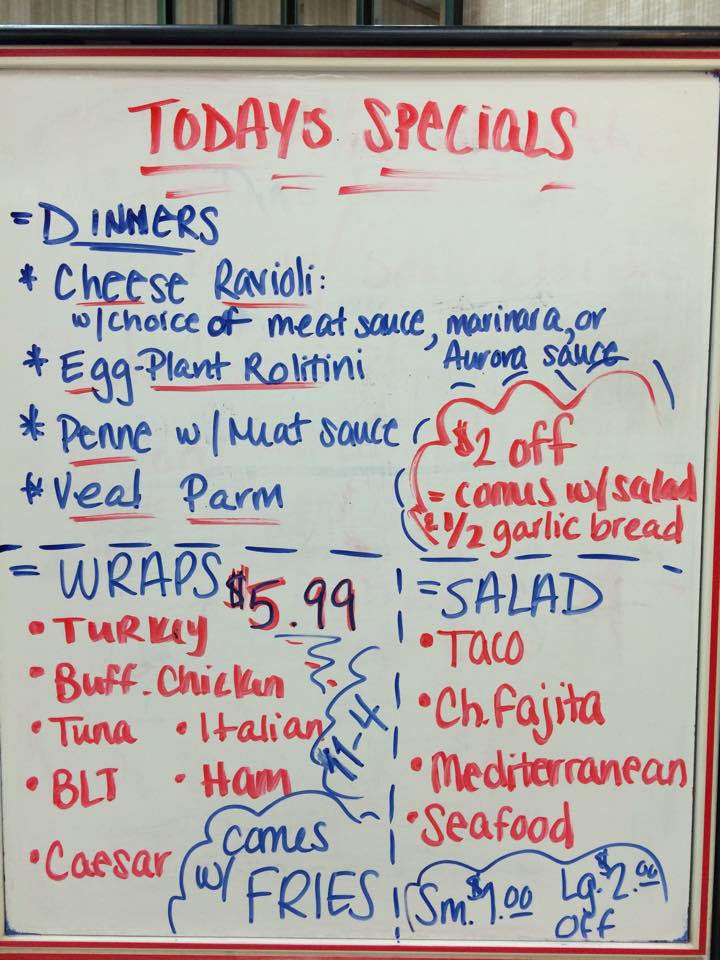 TODAYS SPECIALS
= DINNERS
* Cheese Ravioli:
w/choice of meat sauce, marinara, or
Aurora sauce
* Egg-Plant Rolitini
* Penne w/Meat sauce
* Veal Parm
$2 off
= comes w/salad
& 1/2 garlic bread
= WRAPS $5.99
• Turkey
• Buff. Chicken
• Tuna • Italian
• BLT • Ham
• Caesar
11-4
comes
w/ FRIES
= SALAD
• Taco
• Ch. Fajita
• Mediterranean
• Seafood
Sm. $1.00 Lg. $2.00
off